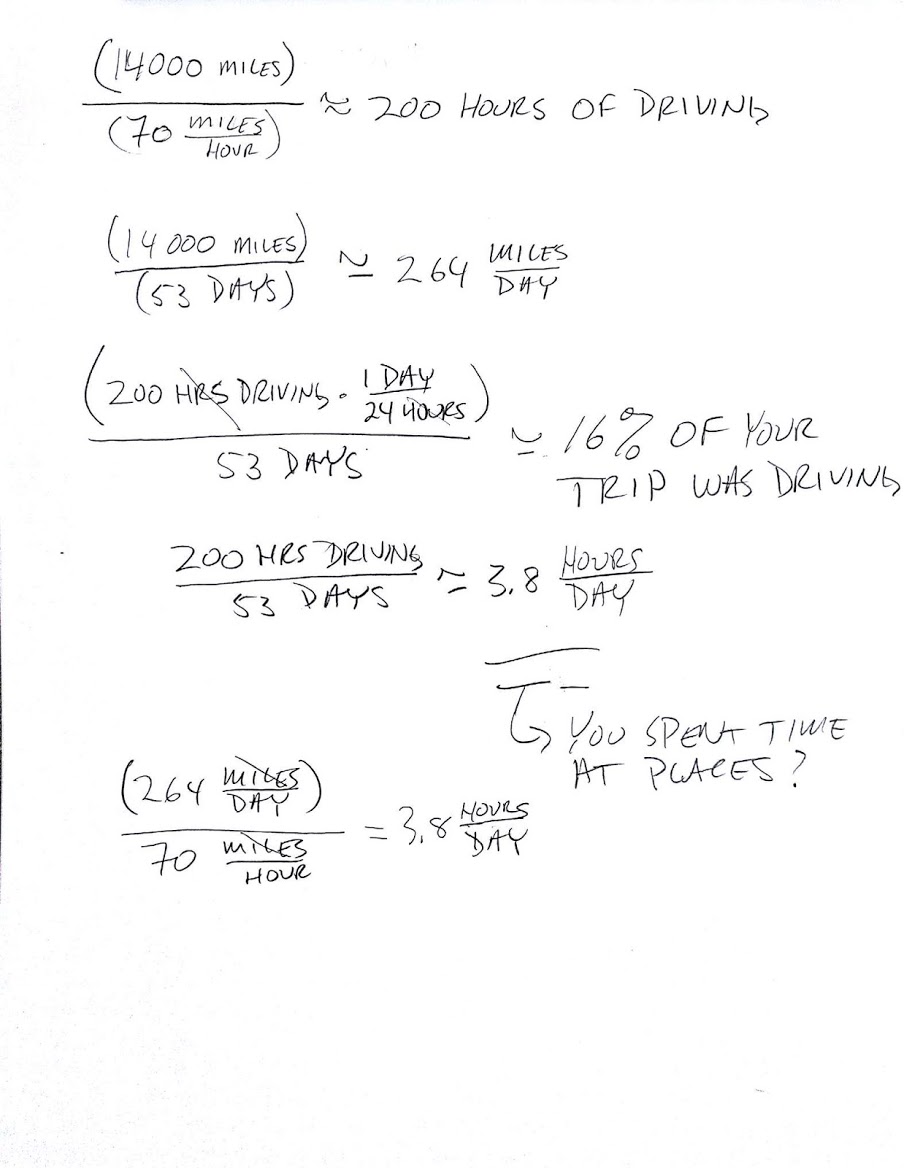 (14000 MILES)
(70 MILES/HOUR) ≈ 200 HOURS OF DRIVING
(14000 MILES)
(53 DAYS) ≃ 264 MILES/DAY
(200 HRS DRIVING · 1 DAY/24 HOURS)
53 DAYS ≃ 16% OF YOUR
TRIP WAS DRIVING
200 HRS DRIVING
53 DAYS ≃ 3.8 HOURS/DAY
↳ YOU SPENT TIME
AT PLACES?
(264 MILES/DAY)
70 MILES/HOUR = 3.8 HOURS/DAY